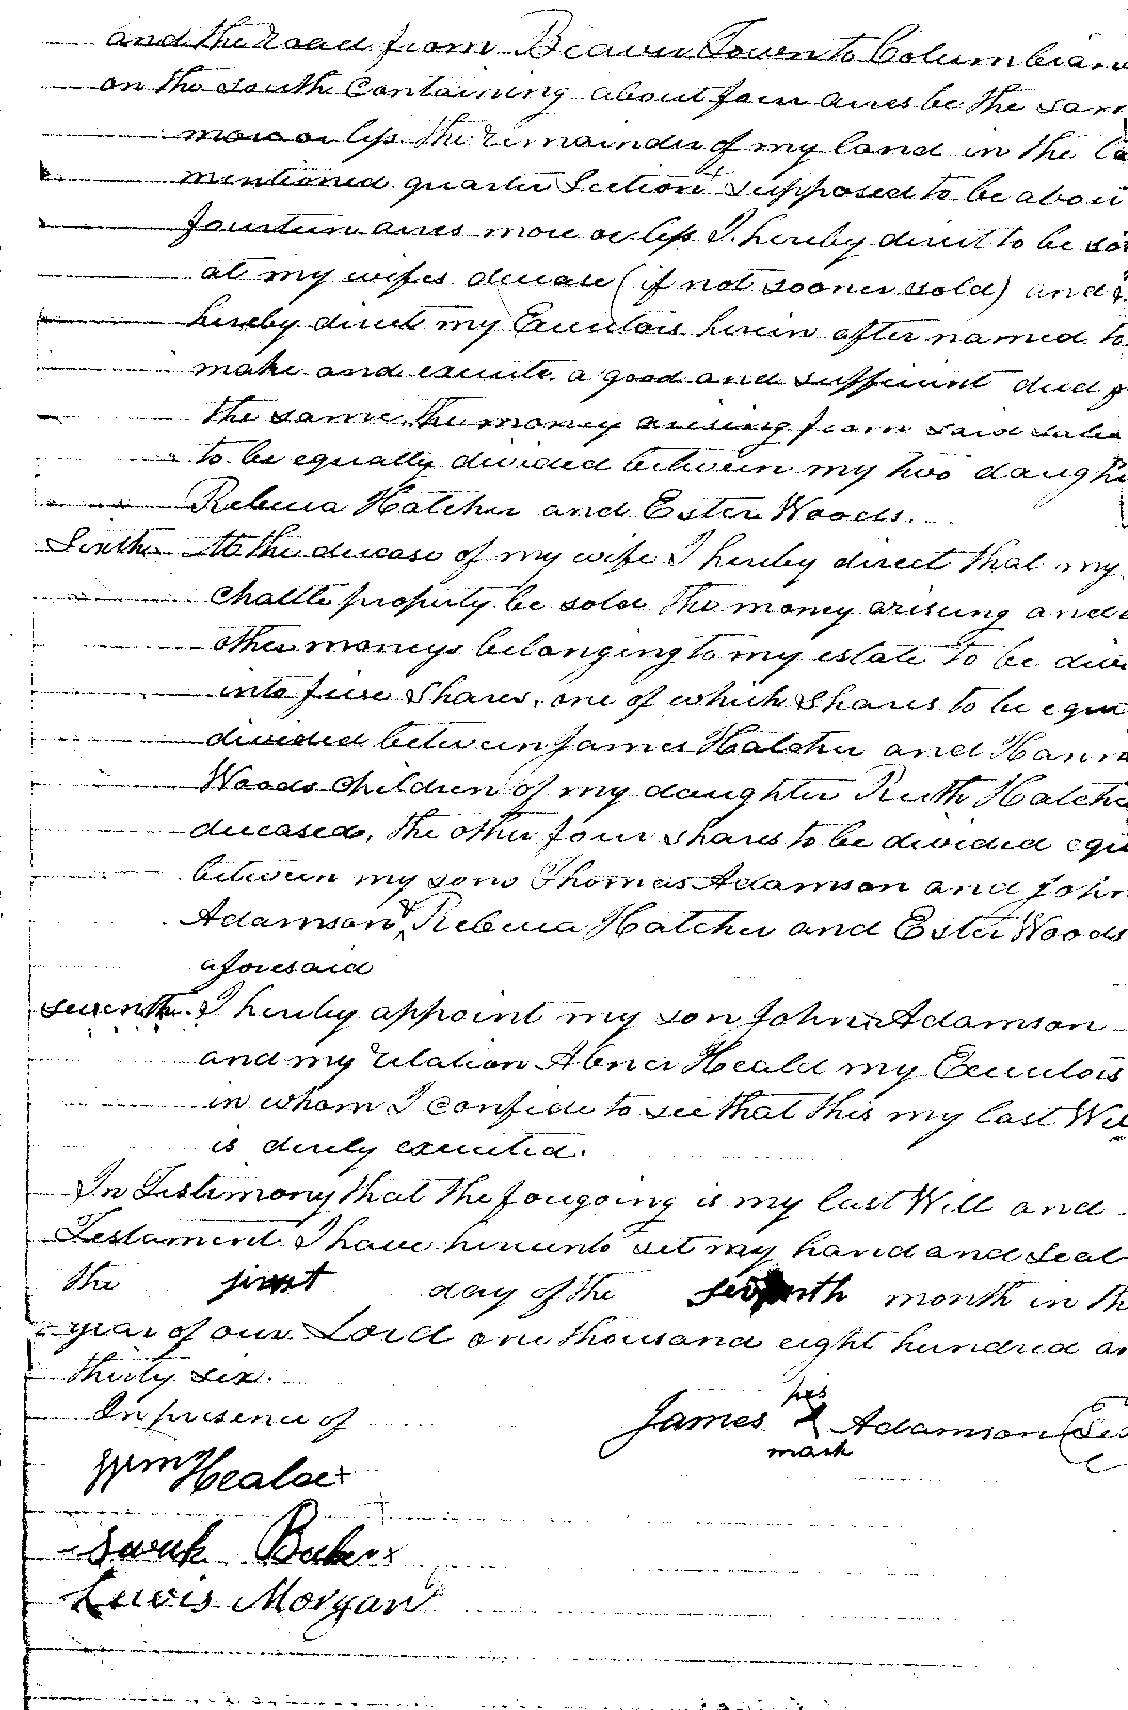 and the road from Beaver Town to Columbiana
on the south Containing about four acres be the sam
more or less the remainder of my land in the la
mentioned quarter Section supposed to be abou
fourteen acres more or less I hereby direct to be so
at my wifes decease (if not sooner sold) and I
hereby direct my Executors herein after named to
make and execute a good and sufficient deed f
the same the money arising from said sales
to be equally divided between my two daughte
Rebecca Hatcher and Ester Woods.
Sixth At the decease of my wife I hereby direct that my
Chattle property be sold the money arising and
other moneys belonging to my estate to be divi
into five Shares, one of which Shares to be equa
divided between James Hatcher and Hanna
Woods Children of my daughter Ruth Hatche
deceased, the other four shares to be divided equ
between my sons Thomas Adamson and John
Adamson & Rebecca Hatcher and Ester Woods
aforesaid
seventh. I hereby appoint my son John Adamson
and my relation Abner Heald my Executors
in whom I confide to see that this my last Will
is duely executed.
In Testimony that the foregoing is my last Will and
Testament I have hereunto set my hand and seal
the first day of the seventh month in th
year of our Lord one thousand eight hundred an
thirty six.
In presence of
his
James X Adamson (Sea
mark
Wm Heald
Sarah
Lewis Morgan